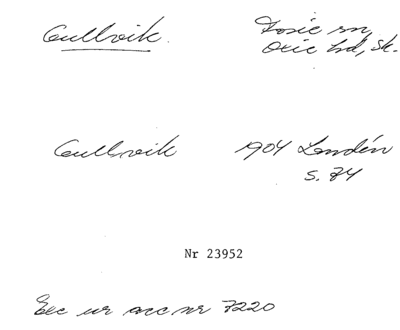 Gullvik. Fosie sn,
Oxie hd, Sk.
Gullvik 1904 Landén
s. 74
Nr 23952
Exc ur acc nr 7220